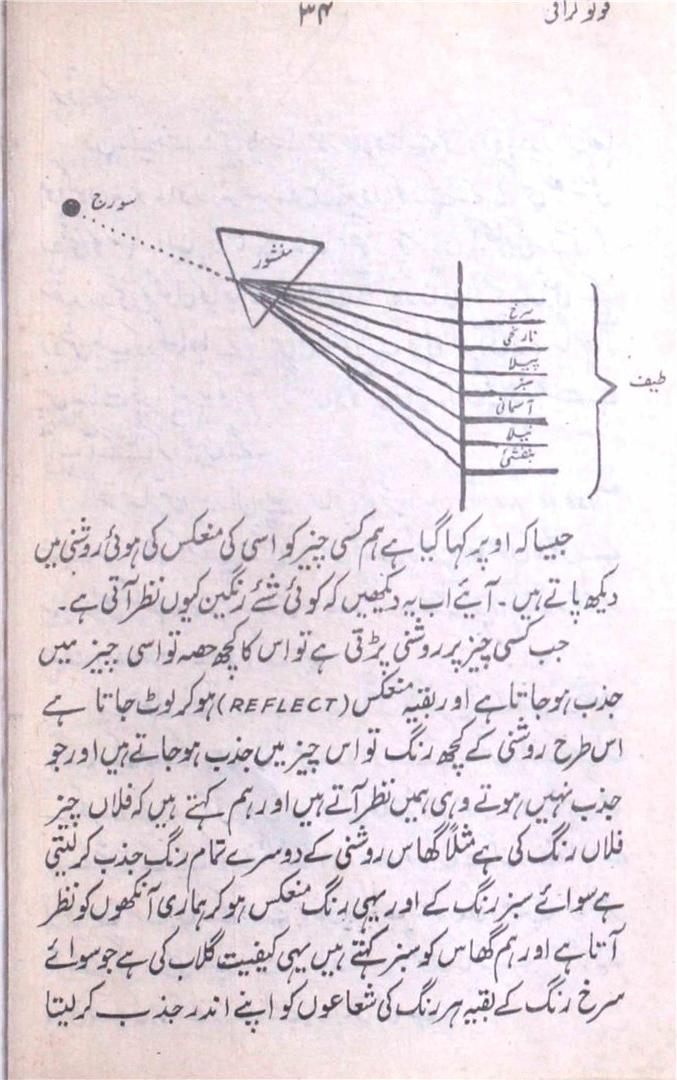 فوٹو گرافی
۳۴
سورج
منشور
سرخ
نارنجی
پیلا
سبز
آسمانی
نیلا
بنفشئی
طیف
جیسا کہ اوپر کہا گیا ہے ہم کسی چیز کو اسی کی منعکس کی ہوئی روشنی میں
دیکھ پاتے ہیں۔ آیئے اب یہ دیکھیں کہ کوئی شئے رنگین کیوں نظر آتی ہے۔
جب کسی چیز پر روشنی پڑتی ہے تو اس کا کچھ حصہ تو اسی چیز میں
جذب ہو جاتا ہے اور بقیہ منعکس (REFLECT) ہو کر لوٹ جاتا ہے
اس طرح روشنی کے کچھ رنگ تو اس چیز میں جذب ہو جاتے ہیں اور جو
جذب نہیں ہوتے وہی ہمیں نظر آتے ہیں اور ہم کہتے ہیں کہ فلاں چیز
فلاں رنگ کی ہے مثلاً گھاس روشنی کے دوسرے تمام رنگ جذب کر لیتی
ہے سوائے سبز رنگ کے اور یہی رنگ منعکس ہو کر ہماری آنکھوں کو نظر
آتا ہے اور ہم گھاس کو سبز کہتے ہیں یہی کیفیت گلاب کی ہے جو سوائے
سرخ رنگ کے بقیہ ہر رنگ کی شعاعوں کو اپنے اندر جذب کر لیتا